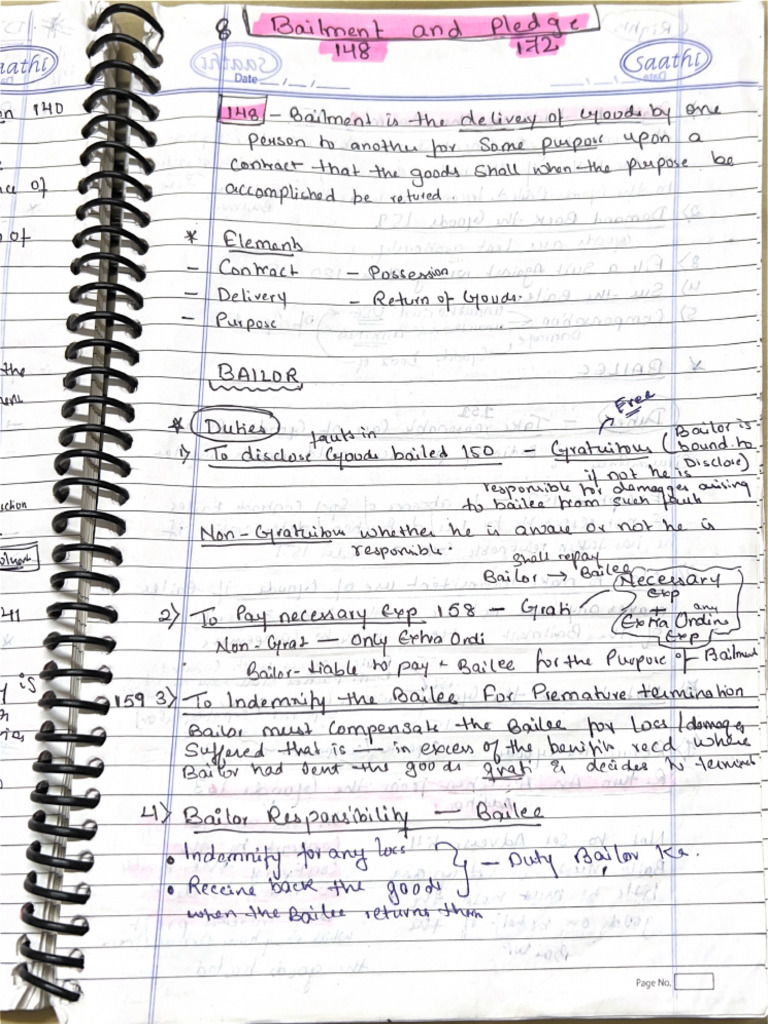 8 Bailment and Pledge
148 172
saathi
Date
saathi
148 - Bailment is the delivery of Goods by one
person to another for some purpose upon a
contract that the goods shall when the purpose be
accomplished be retured.
* Elements
- Contract - Possession
- Delivery - Return of Goods.
- Purpose
BAILOR
Free
* Duties
1) To disclose faults in Goods bailed 150 - Gratuitous (Bailor is
bound to
Disclose)
if not he is
responsible for damages arising
to bailee from such fault
Non-Gratuitous whether he is aware or not he is
responsible.
shall repay
Bailor → Bailee
2) To Pay necessary Exp 158 - Grati
Necessary
Exp
+
any
Extra Ordin
Exp
Non-Grat - Only Extra Ordi
Bailor liable to pay - Bailee for the Purpose of Bailment
159 3) To Indemnify the Bailee For Premature termination
Bailor must compensate the Bailee for Loss/damages
Suffered that is - in excess of the benifits recd where
Bailor had lent the goods grati & decides to terminat
4) Bailor Responsibility - Bailee
• Indemnify for any loss
- Duty Bailor Ka.
• Receive back the goods
when the Bailee returns them
Page No.
aathi
on 140
ce of
of
the
ction
41
is